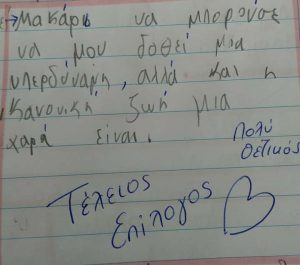 →Μακάρι να μπορούσε
να μου δοθεί μια
υπερδύναμη, αλλά και η
κανονική ζωή μια
χαρά είναι.
Πολύ
θετικός
Τέλειος
Επίλογος